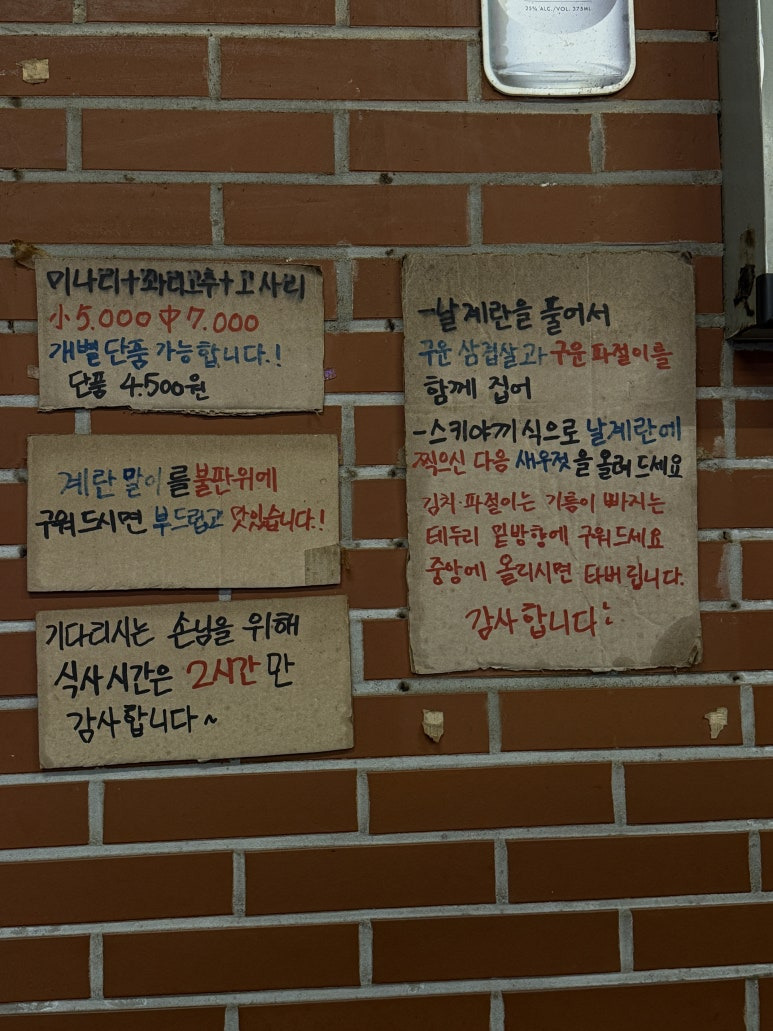 23% ALC./VOL. 375ML
미나리+꽈리고추+고사리
小 5.000 中 7.000
개별 단품 가능합니다.!
단품 4.500원
계란말이를 불판위에
구워드시면 부드럽고 맛있습니다.!
기다리시는 손님을 위해
식사시간은 2시간 만
감사합니다~
-날계란을 풀어서
구운 삼겹살과 구운 파절이를
함께 집어
-스키야끼식으로 날계란에
찍으신 다음 새우젓을 올려드세요
김치·파절이는 기름이 빠지는
테두리 밑방향에 구워드세요
중앙에 올리시면 타버립니다.
감사합니다: